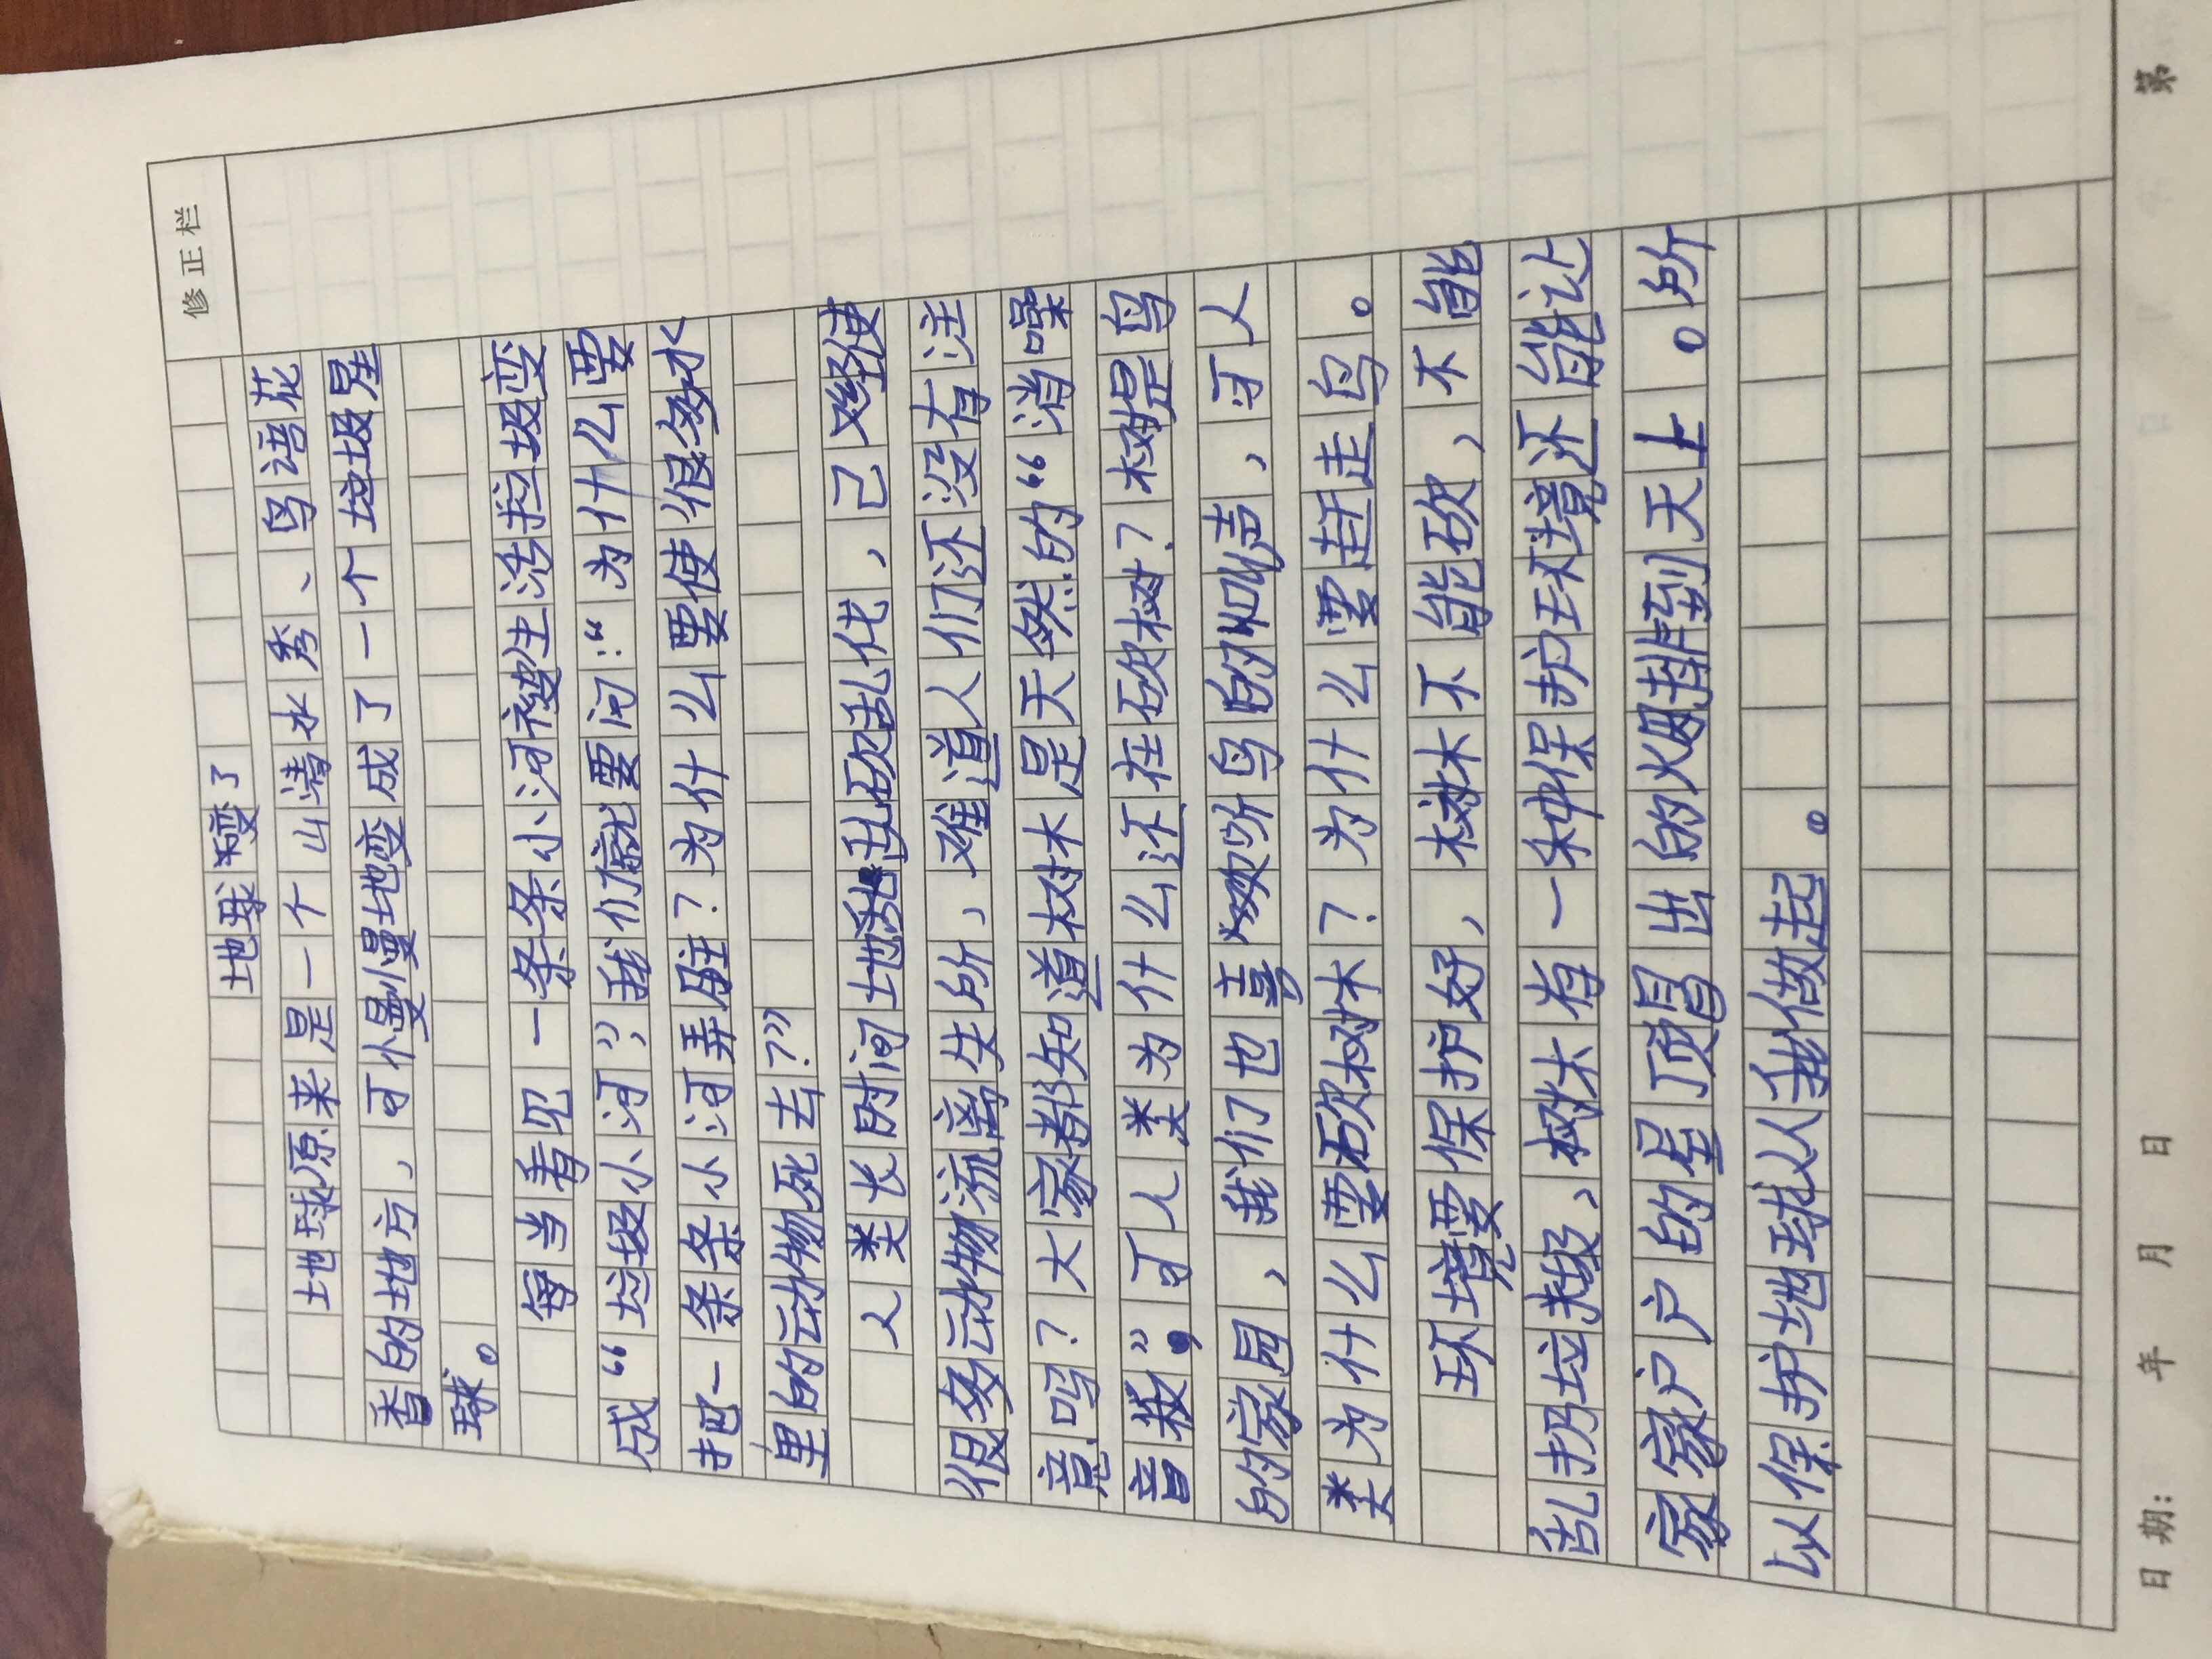 修正栏
地球变了
地球原来是一个山清水秀、鸟语花
香的地方，可慢慢地变成了一个垃圾星
球。
每当看见一条条小河被生活拉圾变
成“垃圾小河”，我们就要问：“为什么要
把一条条小河弄脏？为什么要使很多水
里的动物死去？”
人类长时间地乱砍乱伐，已经使
很多动物流离失所，难道人们还没有注
意吗？大家都知道树木是天然的“消噪
音器”。可人类为什么还在砍树？树是鸟
的家园，我们也喜欢听鸟的叫声，可人
类为什么要砍树木？为什么要赶走鸟。
环境要保护好，树木不能砍，不能
乱扔垃圾，树木有一种保护环境还能让
家家户户的屋顶冒出的火烟排到天上。所
以保护地球从我做起。
日期： 年 月 日 第